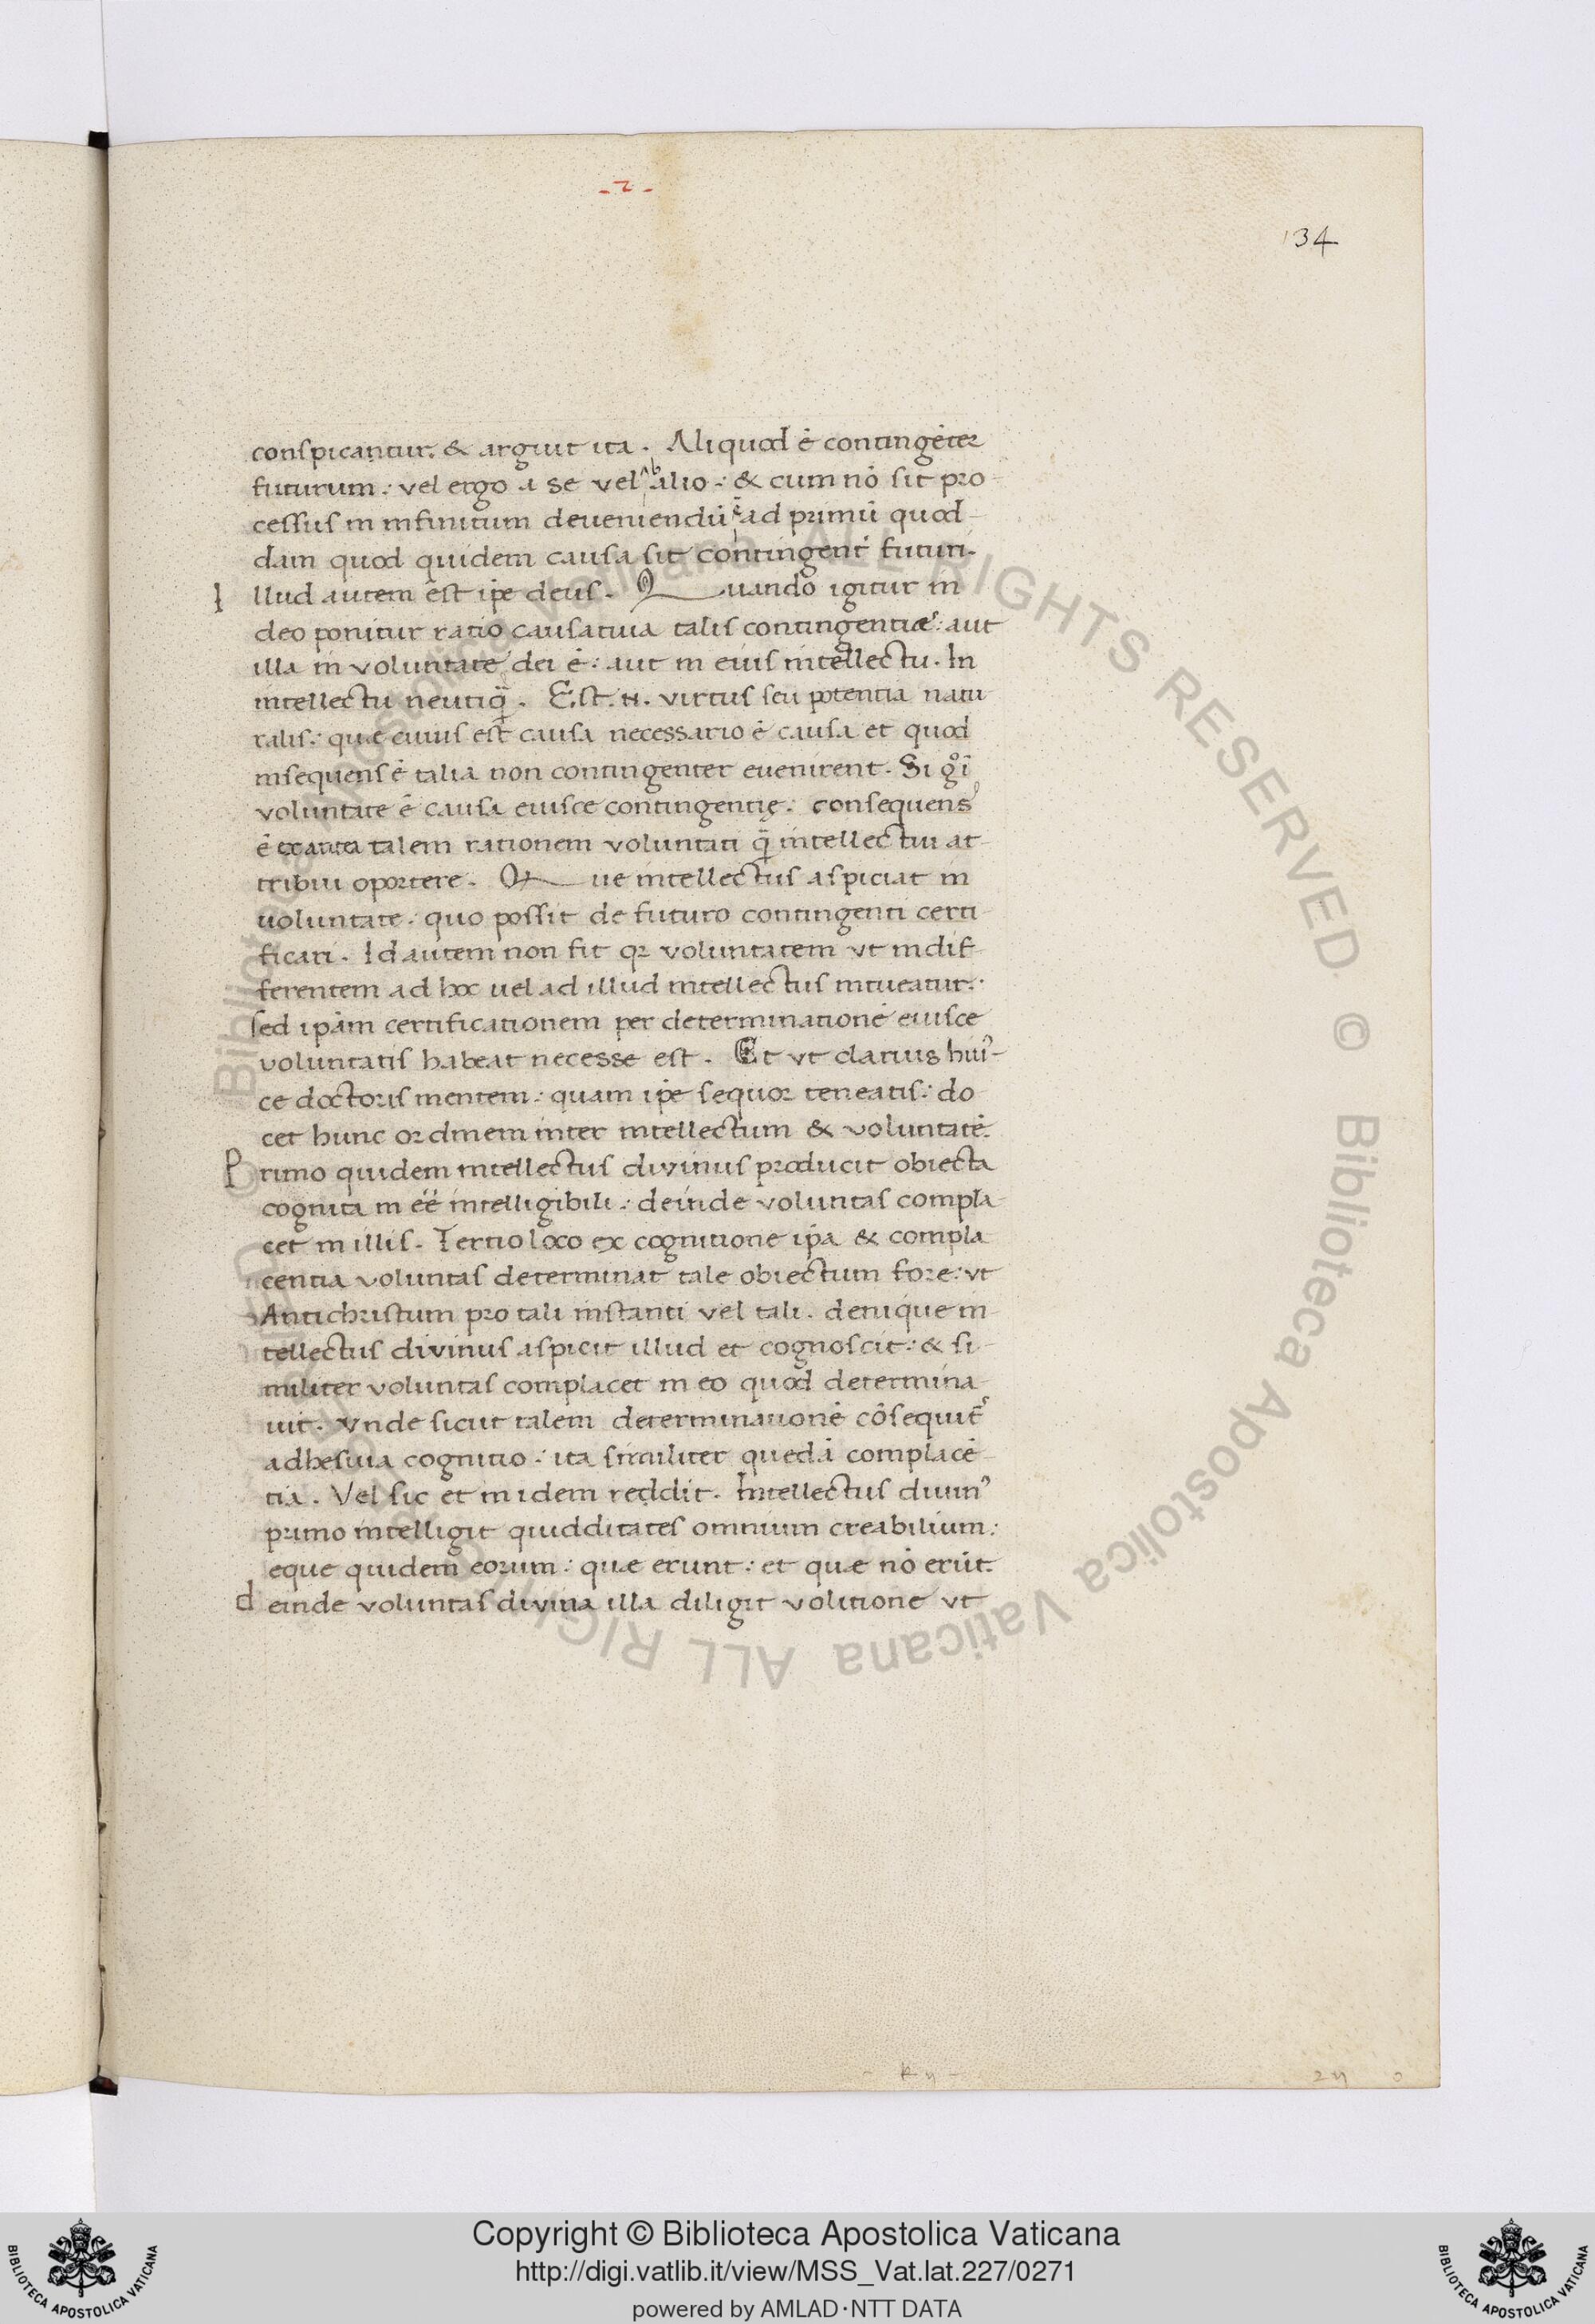 -2-
134
conspicantur. & arguit ita. Aliquod ē contingēter
futurum: vel ergo a se vel ab alio: & cum nō sit pro
cessus in infinitum deueniendū ē ad primū quod
dam quod quidem causa sit contingentꝭ futuri.
Illud autem est ip̄e deus. Quando igitur in
deo ponitur ratio causatiua talis contingentiæ: aut
illa in voluntate dei ē: aut in eius intellectu. In
intellectu neutiq̄. Est .n. virtus seu potentia natu
ralis: quæ cuius est causa necessario ē causa et quod
insequens ē talia non contingenter euenirent. Si gͦ ī
voluntate ē causa eiusce contingentię: consequens
ē talem rationem voluntati q̄ intellectui at
tribui oportere. Que intellectus aspiciat in
uoluntate. quo possit de futuro contingenti certi
ficari. Id autem non fit qꝛ voluntatem vt indif
ferentem ad hoc uel ad illud intellectus intueatur:
sed ip̄am certificationem per determinationē eiusce
voluntatis habeat necesse est. Et vt clarius huiꝰ
ce doctoris mentem: quam ip̄e sequor teneatis: do
cet hunc ordinem inter intellectum & voluntatē.
Primo quidem intellectus divinus producit obiecta
cognita in eē intelligibili: deinde voluntas compla
cet in illis. Tertio loco ex cognitione ip̄a & compla
centia voluntas determinat tale obiectum fore: vt
Antichristum pro tali instanti vel tali. denique in
tellectus divinus aspicit illud et cognoscit: & si
militer voluntas complacet in eo quod determina
uit. vnde sicut talem determinationē cōsequit᷑
adhesiua cognitio: ita similiter quedā complacē
tia. Vel sic et in idem reddit. Intellectus diuinꝰ
primo intelligit quidditates omnium creabilium:
eque quidem eorum: quæ erunt: et quæ nō erūt.
deinde voluntas divina illa diligit volitione vt
Copyright © Biblioteca Apostolica Vaticana
http://digi.vatlib.it/view/MSS_Vat.lat.227/0271
powered by AMLAD·NTT DATA